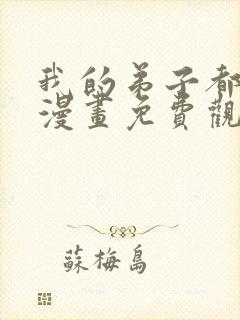 我的弟子都
漫畫免費觀
蘇梅島